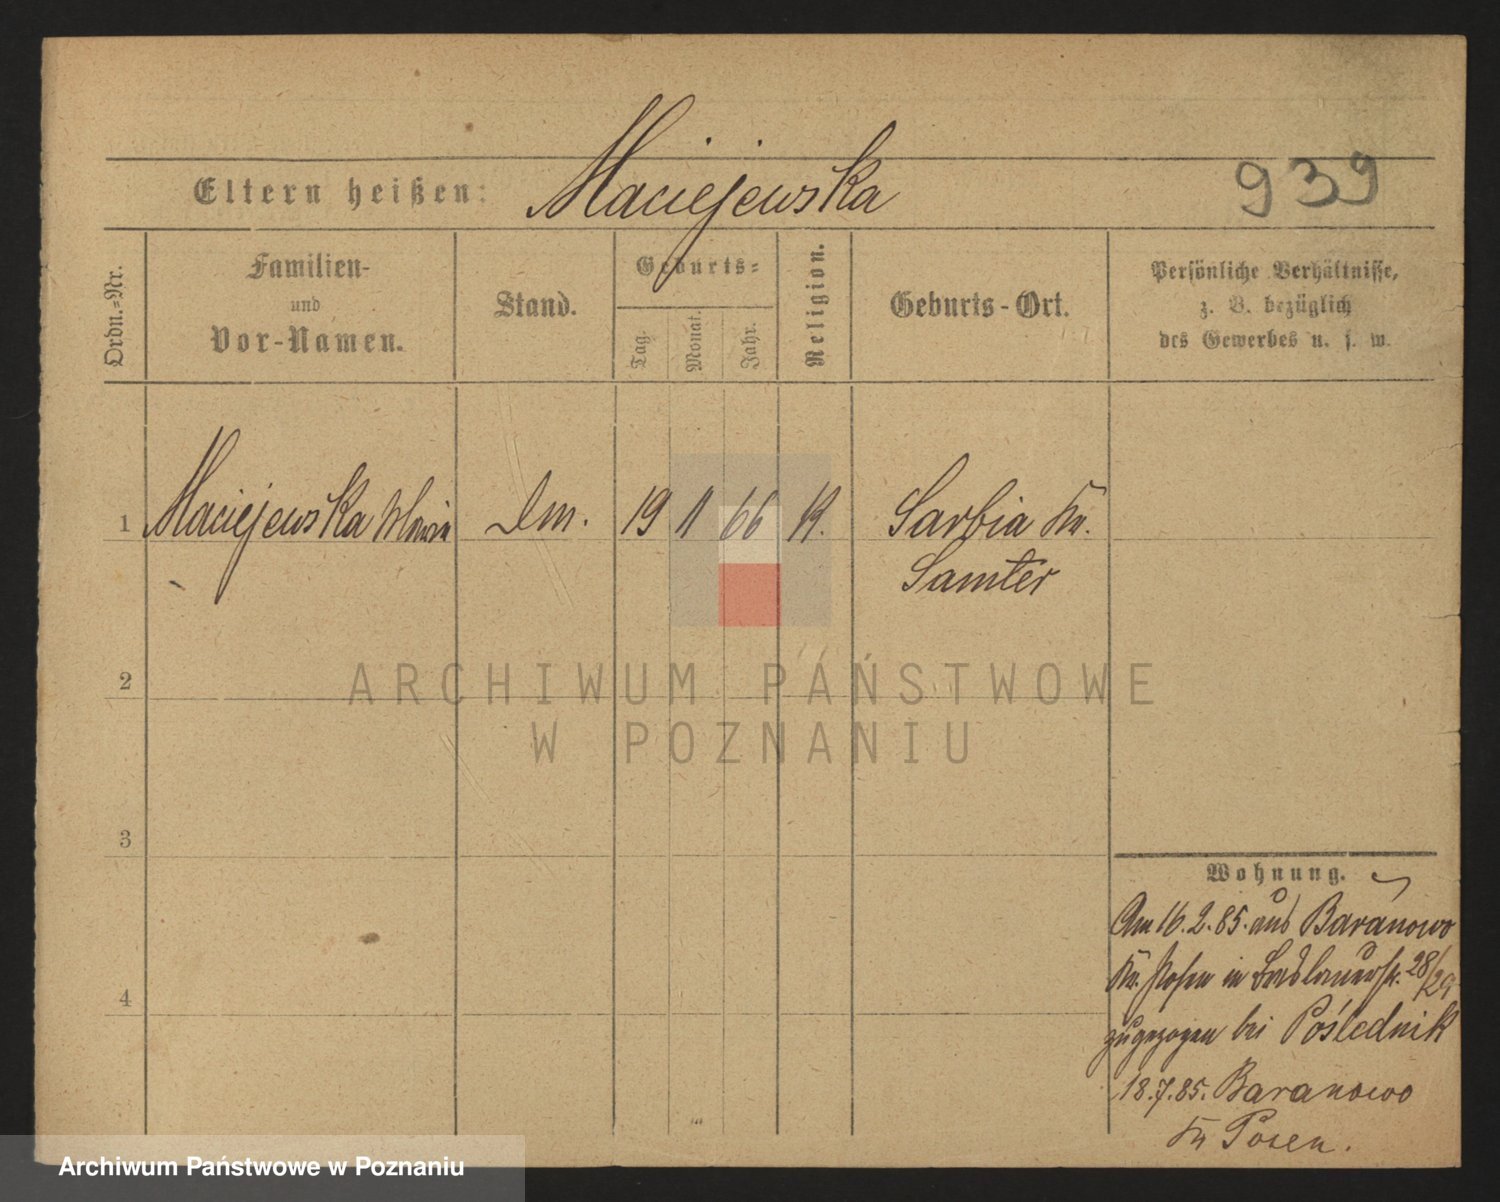 Maciejewska
939
Eltern heißen:
Ordn.=Nr.
Familien-
und
Vor-Namen.
Stand.
Geburts=
Tag.
Monat.
Jahr.
Religion.
Geburts-Ort.
Persönliche Verhältnisse,
z. B. bezüglich
des Gewerbes u. s. w.
1 Maciejewska Maria Dm. 19 11 66 K. Sarbia Kr.
Samter
2
ARCHIWUM PAŃSTWOWE
W POZNANIU
3
Wohnung.
Am 16.2.85. aus Baranowo
Kr. Posen in Breslauerstr. 28/29
4
zugezogen bei Poślednik
18.7.85. Baranowo
Kr Posen.
Archiwum Państwowe w Poznaniu